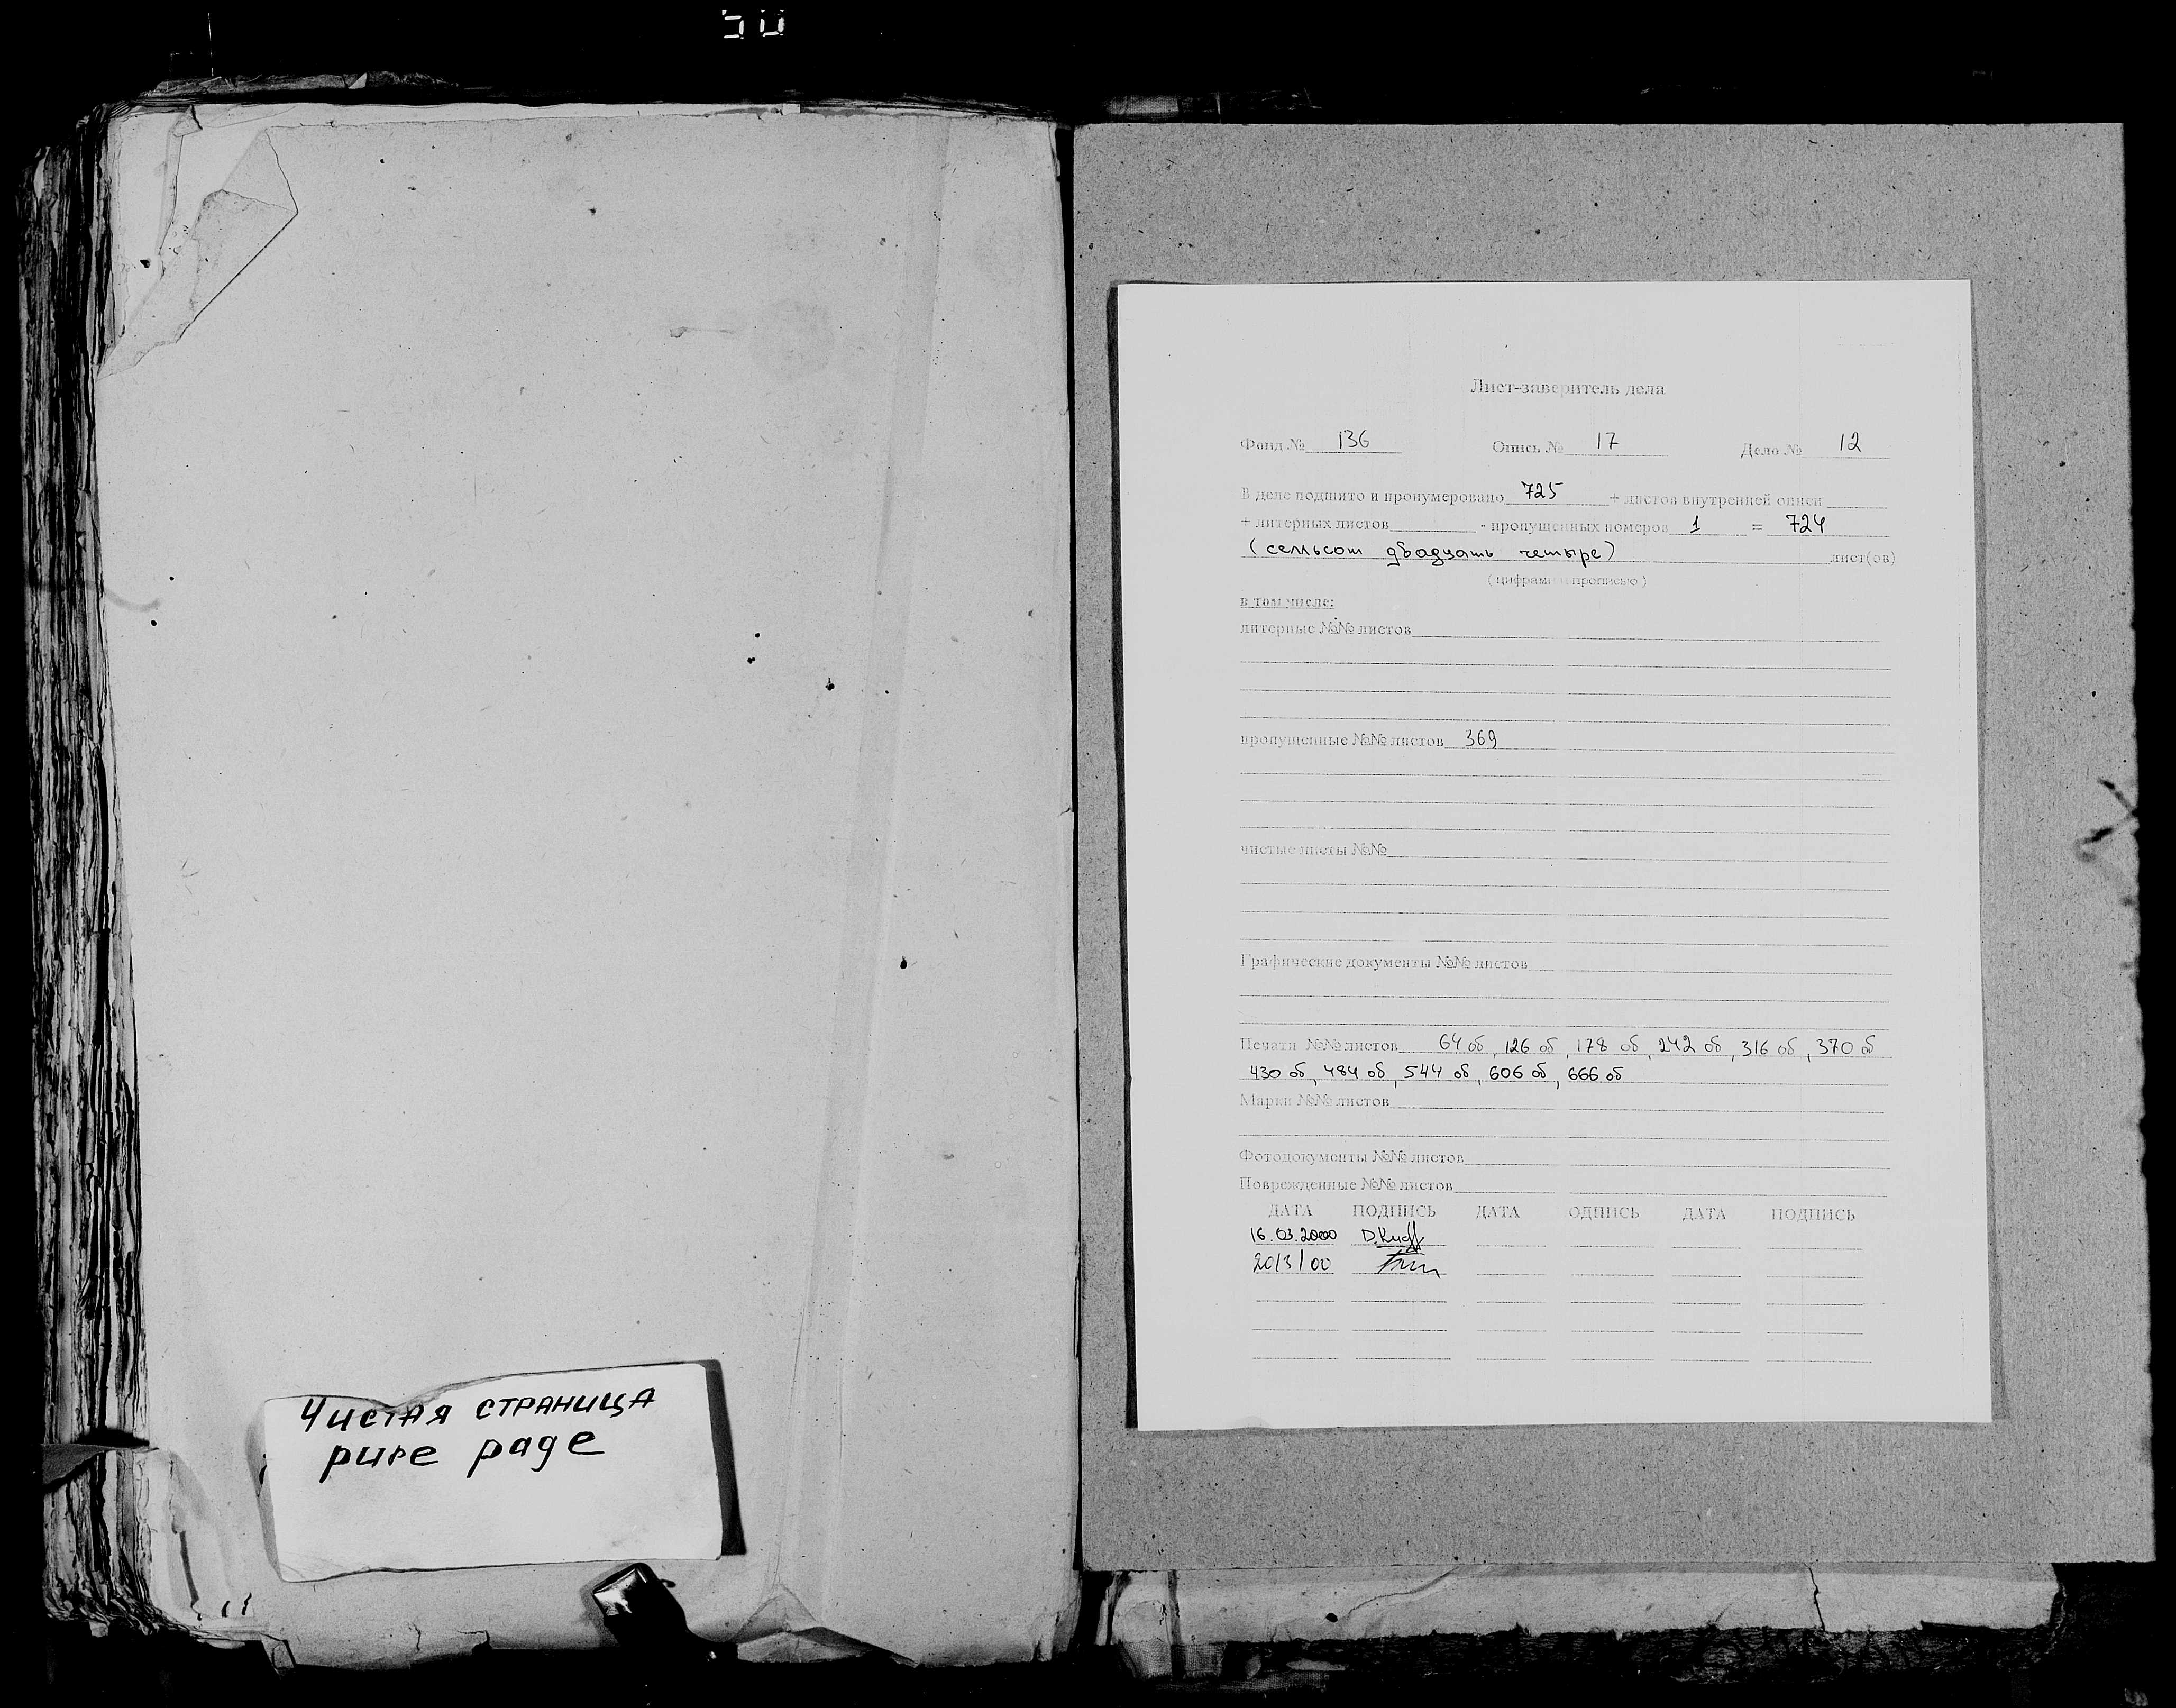 50
Чистая страница
pure page
Лист-заверитель дела
Фонд № 136 Опись № 17 Дело № 12
В деле подшито и пронумеровано 725 + листов внутренней описи
+ литерных листов - пропущенных номеров 1 = 724
(семьсот двадцать четыре) лист(ов)
(цифрами и прописью)
в том числе:
литерные №№ листов
пропущенные №№ листов 369
чистые листы №№
Графические документы №№ листов
Печати №№ листов 64 об, 126 об, 178 об, 242 об, 316 об, 370 об
430 об, 484 об, 544 об, 606 об, 666 об
Марки №№ листов
Фотодокументы №№ листов
Поврежденные №№ листов
ДАТА ПОДПИСЬ ДАТА ОДПИСЬ ДАТА ПОДПИСЬ
16.03.2000
20/3/00